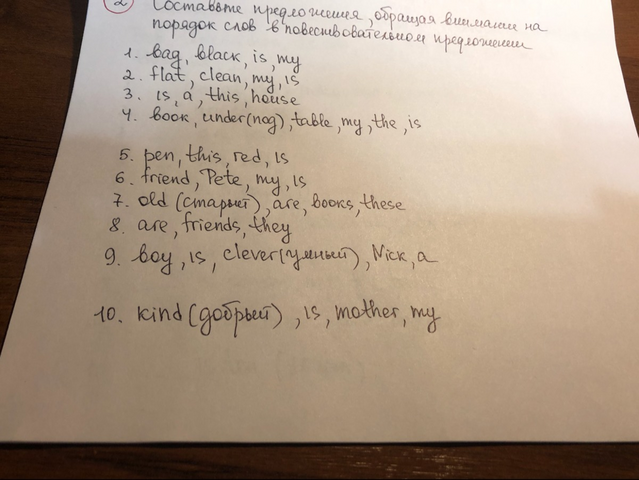 2
Составьте предложения, обращая внимание на
порядок слов в повествовательном предложении
1. bag, black, is, my
2. flat, clean, my, is
3. is, a, this, house
4. book, under (под), table, my, the, is
5. pen, this, red, is
6. friend, Pete, my, is
7. old (старый), are, books, these
8. are, friends, they
9. boy, is, clever (умный), Nick, a
10. kind (добрый), is, mother, my